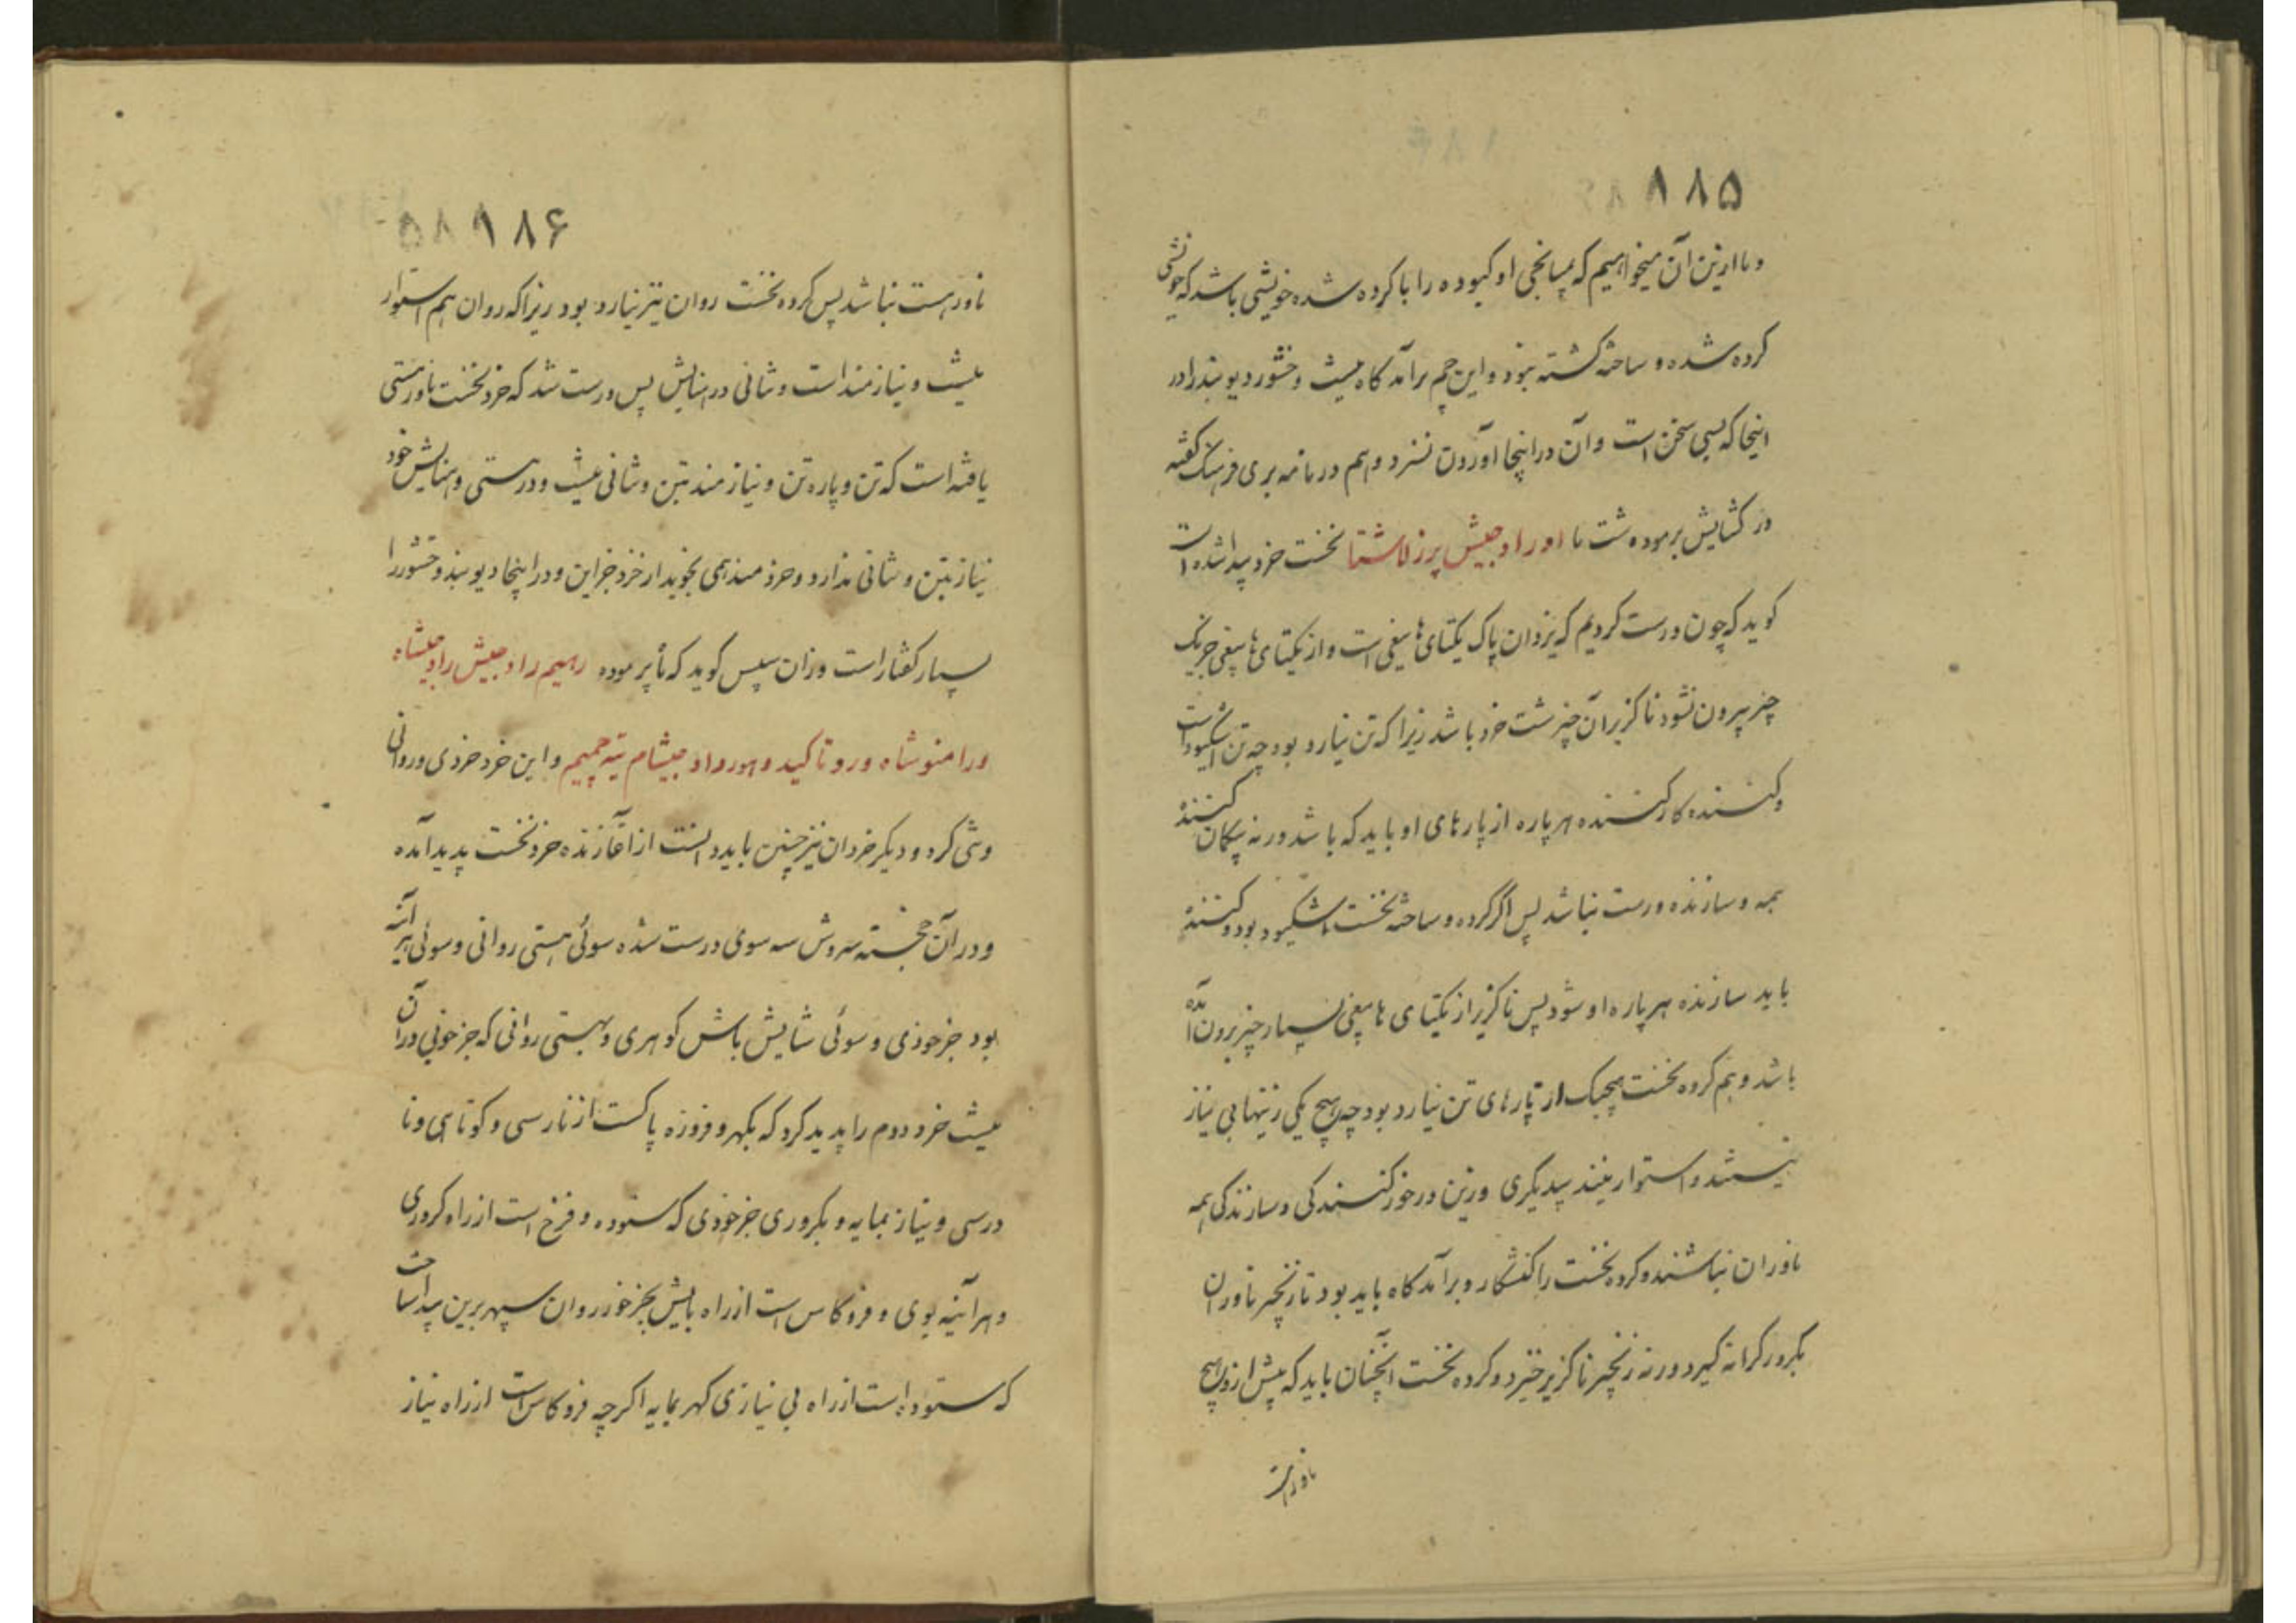 ۱۸۵
و ما ازین آن میخواهیم که میانجی او کبوده را با کرده شده خویشی باشد که خویشی
کرده شده و ساخته گشته بنود و این چم برآمد گاه و خشور دیو بند را در
اینجا که بسی سخن است و آن در اینجا آوردن نسزد و هم در نامه بری فرهنگ گفته
در گشایش برموده شت تا اور راد جیش پرز لاشتا نخست خرد پیدا شده است
گوید که چون درست کردیم که یزدان پاک یکتای است و از یکتای جز یک
چیز بیرون نشود ناگزیر آن چیز شت خرد باشد زیرا که تن نیارد بود چه تن است
و کننده کار کننده هر پاره از پارهای او باید که باشد ور نه بیگمان کننده
همه و سازنده درست نباشد پس اگر کرده و ساخته نخست اشکیود بود و کننده
باید سازنده هر پاره او شود پس ناگزیر از یکتای بسیار چیز برون آمده
باشد و هم کرده نخست هیچیک از پارهای تن نیارد بود چه هیچ یکی زینها بی نیاز
نیستند و استوار نیند بیدیگری وزین در خور کنندگی و سازندگی همه
ناوران نباشند و کرده نخست را کنشگار و برآمد گاه باید بود تا زنجیر ناوران
بکرور کرانه گیرد ور نه زنجیر ناگزیر خیزد و کرده نخست آنچنان باید که پیش ازو هیچ
ناورست
۱۸۶
ناورهست نباشد پس کرده نخست روان نیز نیارد بود زیرا که روان هم استوار
نیست و نیازمند است و ثانی در پس درست شد که خرد نخست ناور هستی
یافته است که تن و پاره تن و نیازمند بتن و ثانی نیست و در هستی و خود
نیاز بتن و ثانی ندارد و خردمند همی نجوید از خرد جز این و در اینجا دیو بند و خشور را
بسیار گفتار است وزان سپس گوید که برموده رهیم راد جیش راد جیشاه
ورا منوشاه ورو تا کید و هورواد جیشام تیه جمیم و این خرد خردی و روانی
و تنی کرد و دیگر خردان نیز چنین باید دانست از آغازنده خرد نخست پدید آمده
و در آن خجسته سروش سه سوی درست شده سوئی هستی روانی و سوئی هر آینه
بود جز خودی و سوئی شایش باش گوهری و هستی روانی که جز خوبی در آن
نیست خرد دوم را پدید کرد که بگهر و فروزه پاکست از نارسی و کوتاهی و نا
درسی و نیاز بمایه و بکروری جز خودی که ستوده و فرخ است از راه کروری
و هر آینه بوی و فروکاس است از راه بجز خود روان سپهر برین پیدا ساخت
که ستوده است از راه بی نیازی گهر بمایه اگرچه فروکاس است از راه نیاز